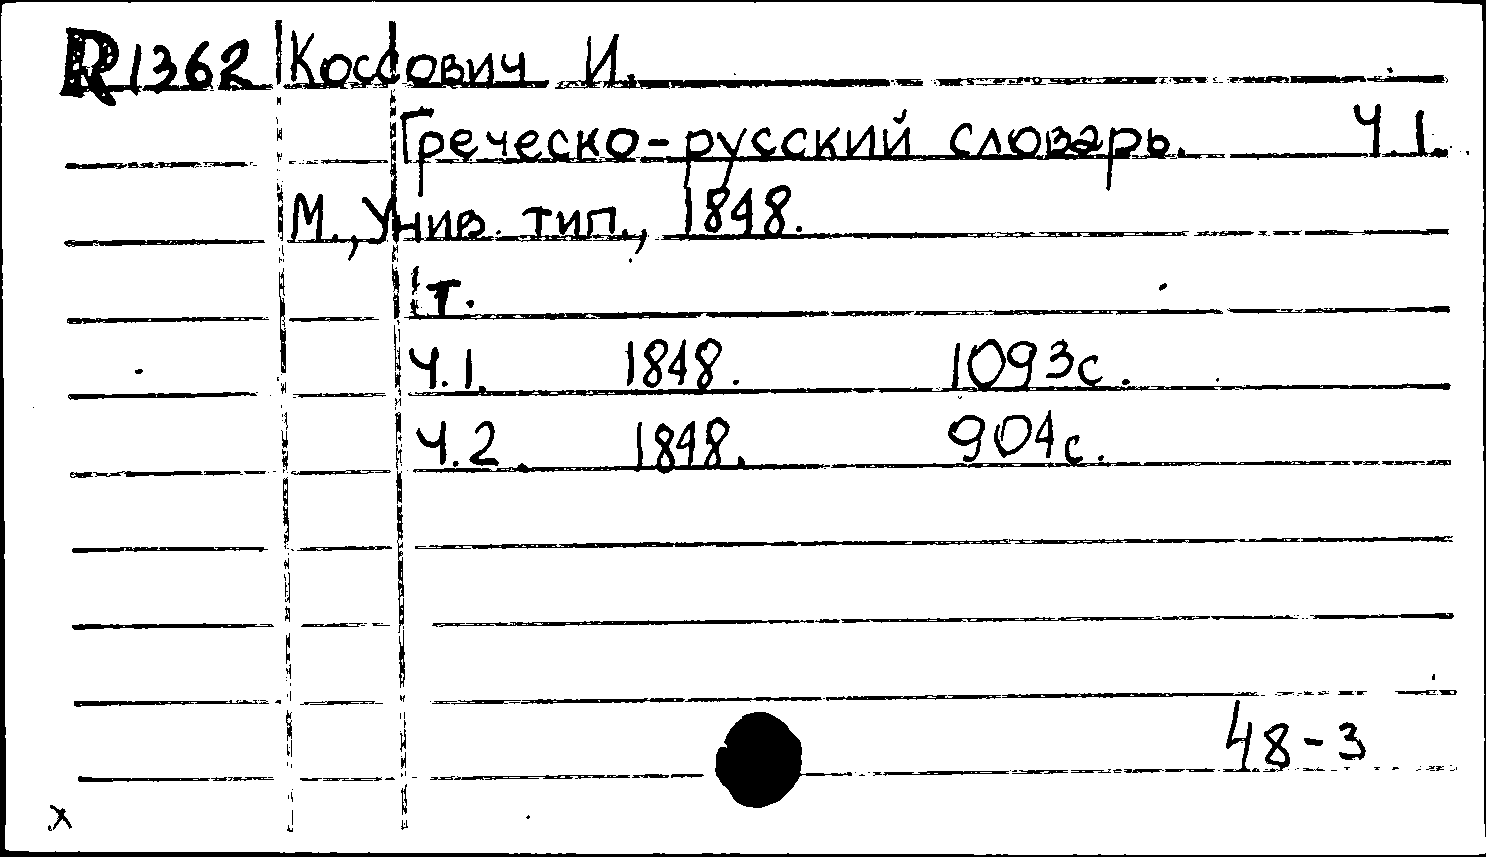 R1362 Коссович И.
Греческо-русский словарь. Ч.1.
М., Унив. тип., 1848.
т.
Ч.1. 1848. 1093с.
Ч.2. 1848. 904с.
48-3
х